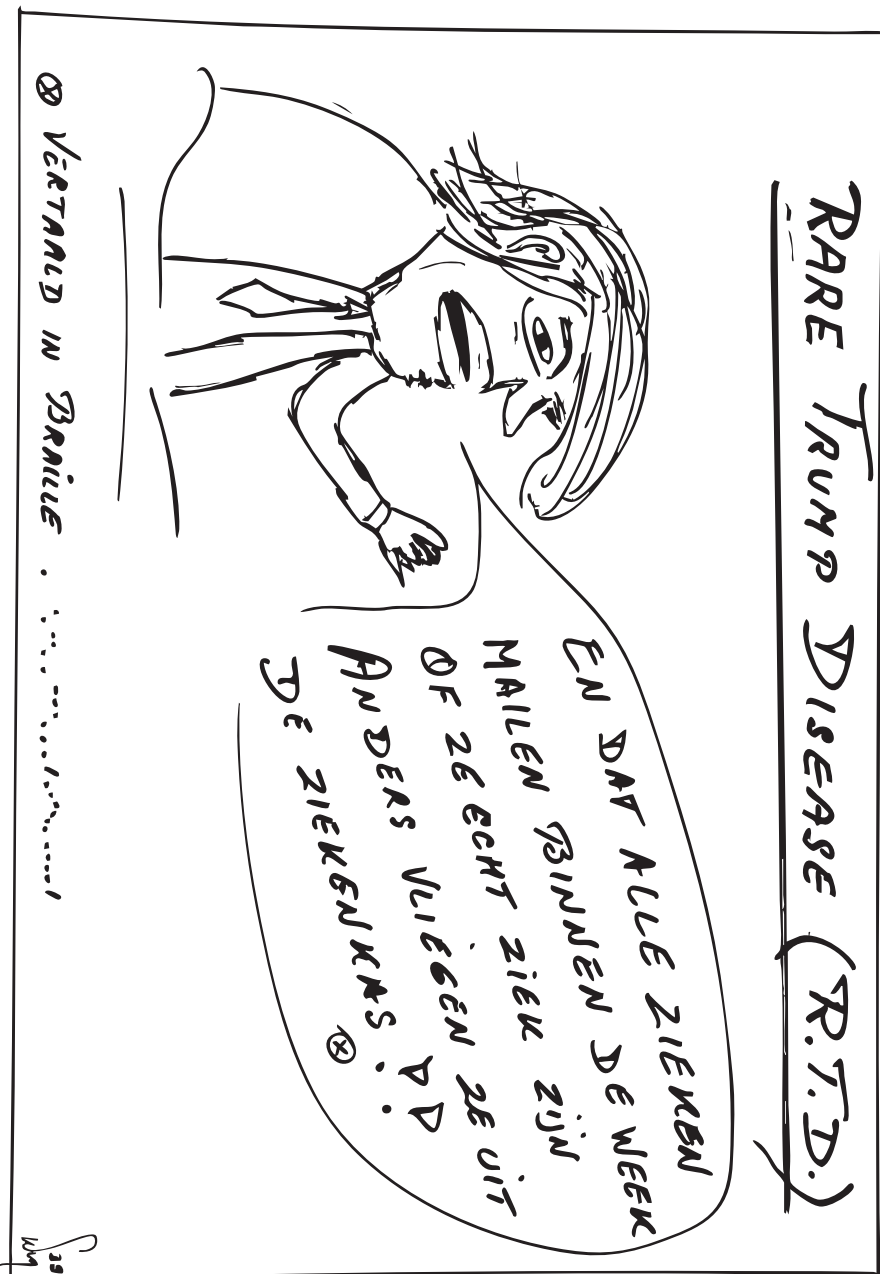 RARE TRUMP DISEASE (R.T.D.)
EN DAT ALLE ZIEKEN
MAILEN BINNEN DE WEEK
OF ZE ECHT ZIEK ZIJN
ANDERS VLIEGEN ZE UIT
DE ZIEKENKAS!!
ⓧ
ⓧ VERTAALD IN BRAILLE